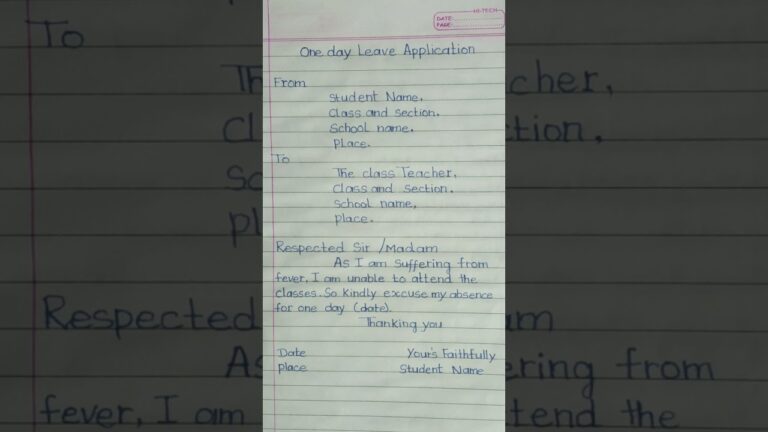 HI-TECH
DATE:
PAGE:
One day Leave Application
From
Student Name.
Class and section.
School name.
Place.
To
The class Teacher,
Class and section.
School name,
place.
Respected Sir / Madam
As I am suffering from
fever, I am unable to attend the
classes. So kindly excuse my absence
for one day (date).
Thanking you
Date Your's Faithfully
place Student Name